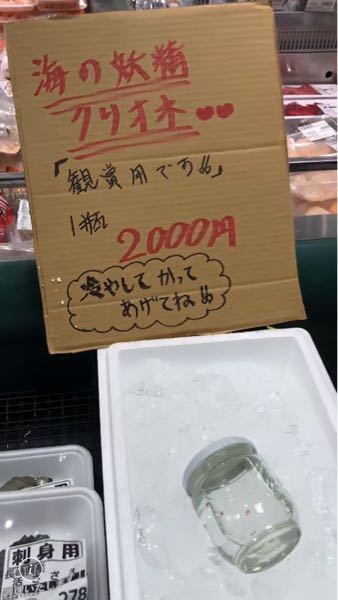 海の妖精
クリオネ
「観賞用です〃」
1瓶
2000円
冷やしてかって
あげてね〃
刺身用
278